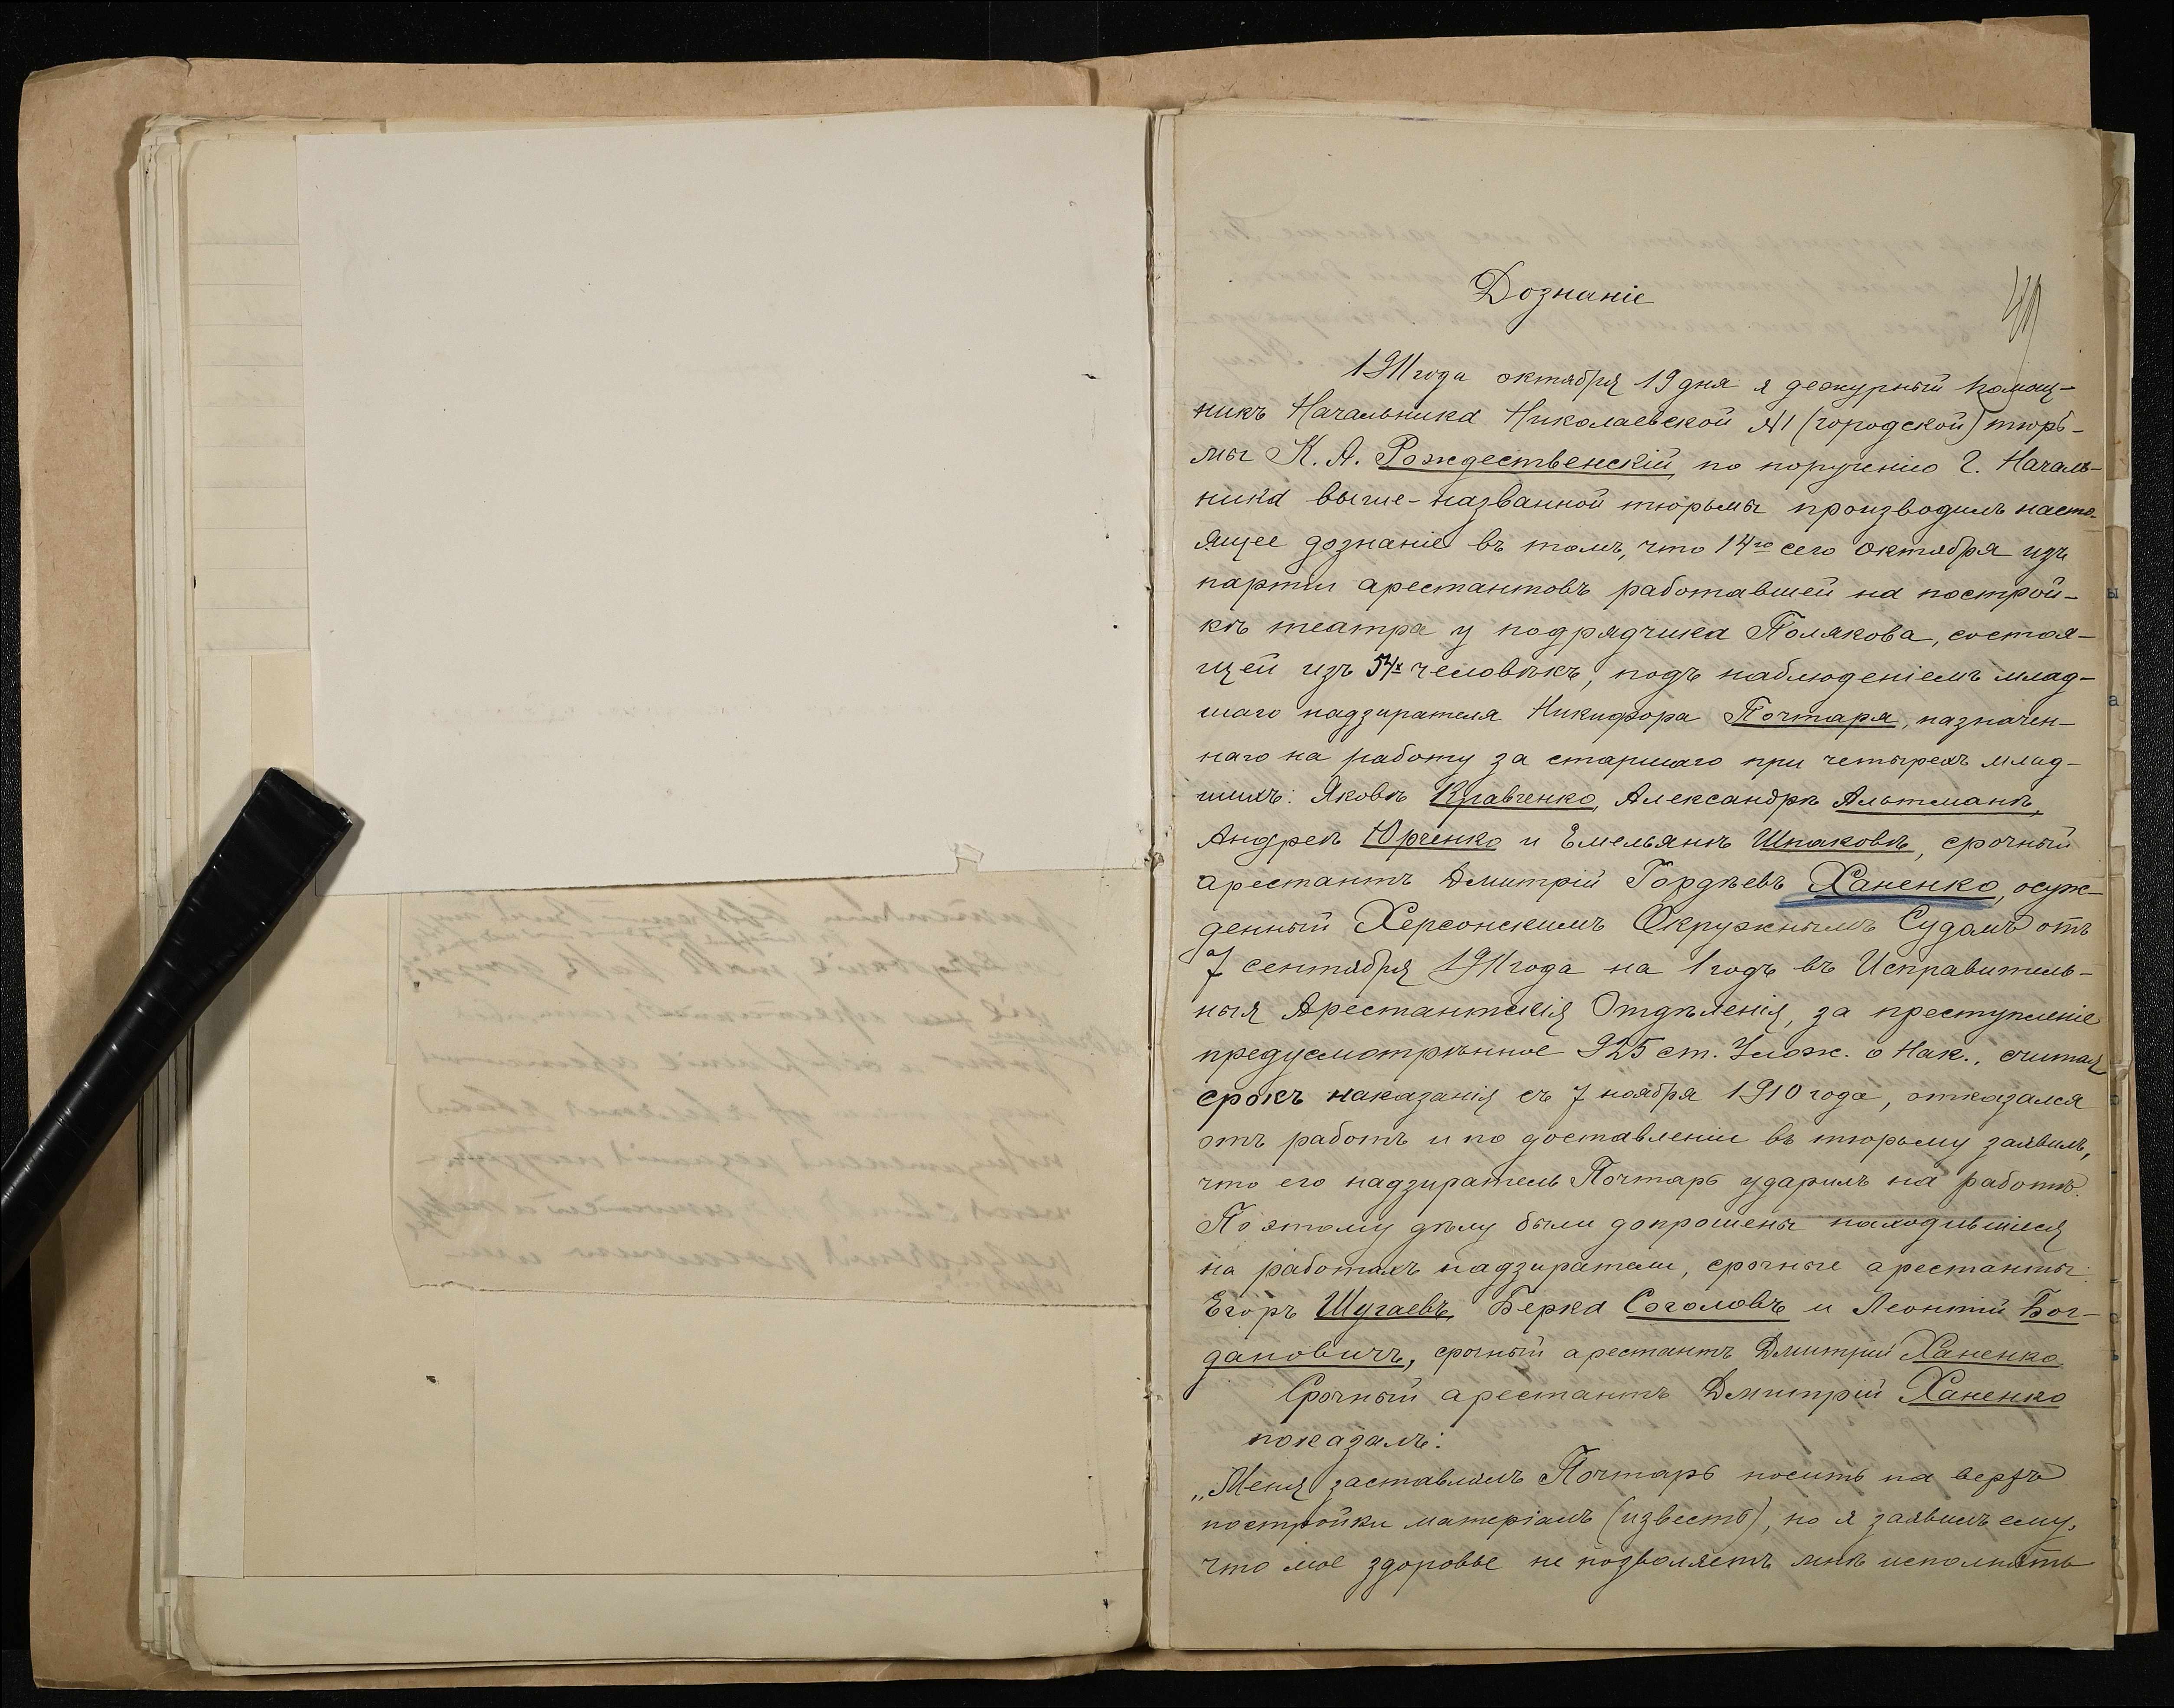 Дознаніе
1911 года октября 19 дня я дежурный помощ-
никъ Начальника Николаевской №1 (городской) тюрь-
мы К. А. Рождественскій, по порученію Г. Началь-
ника выше-названной тюрьмы производилъ насто-
ящее дознаніе въ томъ, что 14го сего октября изъ
партіи арестантовъ работавшей на построй-
кѣ театра у подрядчика Полякова, состоя-
щей изъ 54х человѣкъ, подъ наблюденіемъ млад-
шаго надзирателя Никифора Почтаря, назначен-
наго на работу за старшаго при четырехъ млад-
шихъ: Яковѣ Кравченко, Александрѣ Альтманѣ,
Андреѣ Юрченко и Емельянѣ Шпаковѣ, срочный
арестантъ Дмитрій Гордѣевъ Ханенко, осуж-
денный Херсонскимъ Окружнымъ Судомъ отъ
7 сентября 1911 года на 1 годъ въ Исправитель-
ныя Арестантскія Отдѣленія, за преступленіе
предусмотрѣнное 925 ст. Улож. о Нак., считая
срокъ наказанія съ 7 ноября 1910 года, отказался
отъ работъ и по доставленіи въ тюрьму заявилъ,
что его надзиратель Почтарь ударилъ на работѣ.
По этому дѣлу были допрошены находившіеся
на работахъ надзиратели, срочные арестанты:
Егоръ Шугаевъ, Берка Соголовъ и Леонтій Бог-
дановичъ, срочный арестантъ Дмитрій Ханенко
Срочный арестантъ Дмитрій Ханенко
показалъ:
„Меня заставлялъ Почтарь носить на верхъ
постройки матеріалъ (известь), но я заявилъ ему,
что мое здоровье не позволяетъ мнѣ исполнять